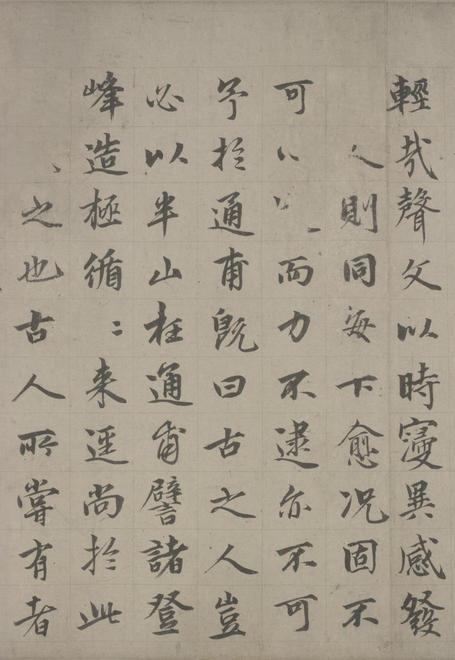 輕哉聲文以時寖異感發
人則同每下愈况固不
可而力不逮亦不可
予於通甫既曰古之人豈
必以半山枉通甫譬諸登
峰造極循〻來逕尚於此
之也古人所嘗有者